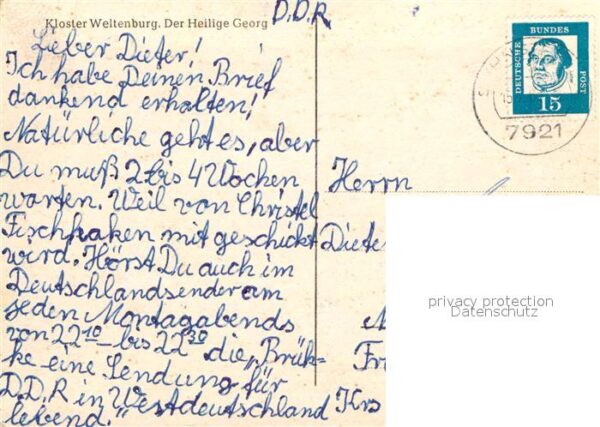 Kloster Weltenburg. Der Heilige Georg
D.D.R
Lieber Dieter!
Ich habe Deinen Brief
dankend erhalten!
Natürliche geht es, aber
Du muß 2 bis 4 Wochen
warten. Weil von Christel
Fischhaken mit geschickt
wird. Hörst Du auch im
Deutschlandsender am
jeden Montagabends
von 22¹⁰ bis 22³⁰ die „Brük-
ke eine Sendung für
D.D.R in Westdeutschland
lebend."
DEUTSCHE BUNDESPOST
15
7921
Herrn
Dieter
Krs
privacy protection
Datenschutz